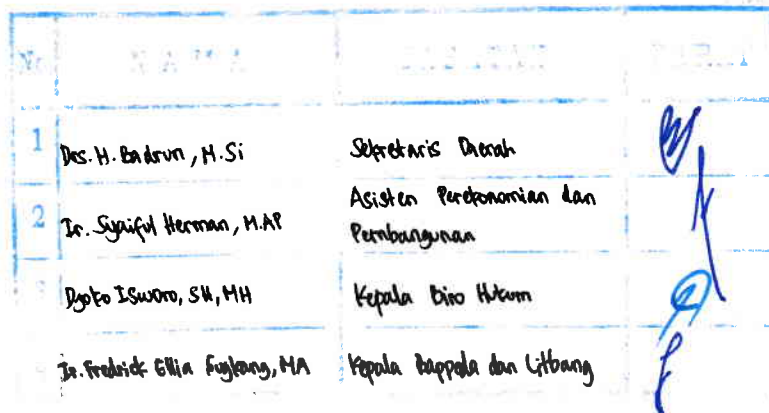 No N A M A
1 Drs. H. Badrun, M.Si Sekretaris Daerah
2 Ir. Syaiful Herman, M.AP Asisten Perekonomian dan
Pembangunan
Djoko Isworo, SH, MH Kepala Biro Hukum
Ir. Fredrick Ellia Kepala Bappeda dan Litbang